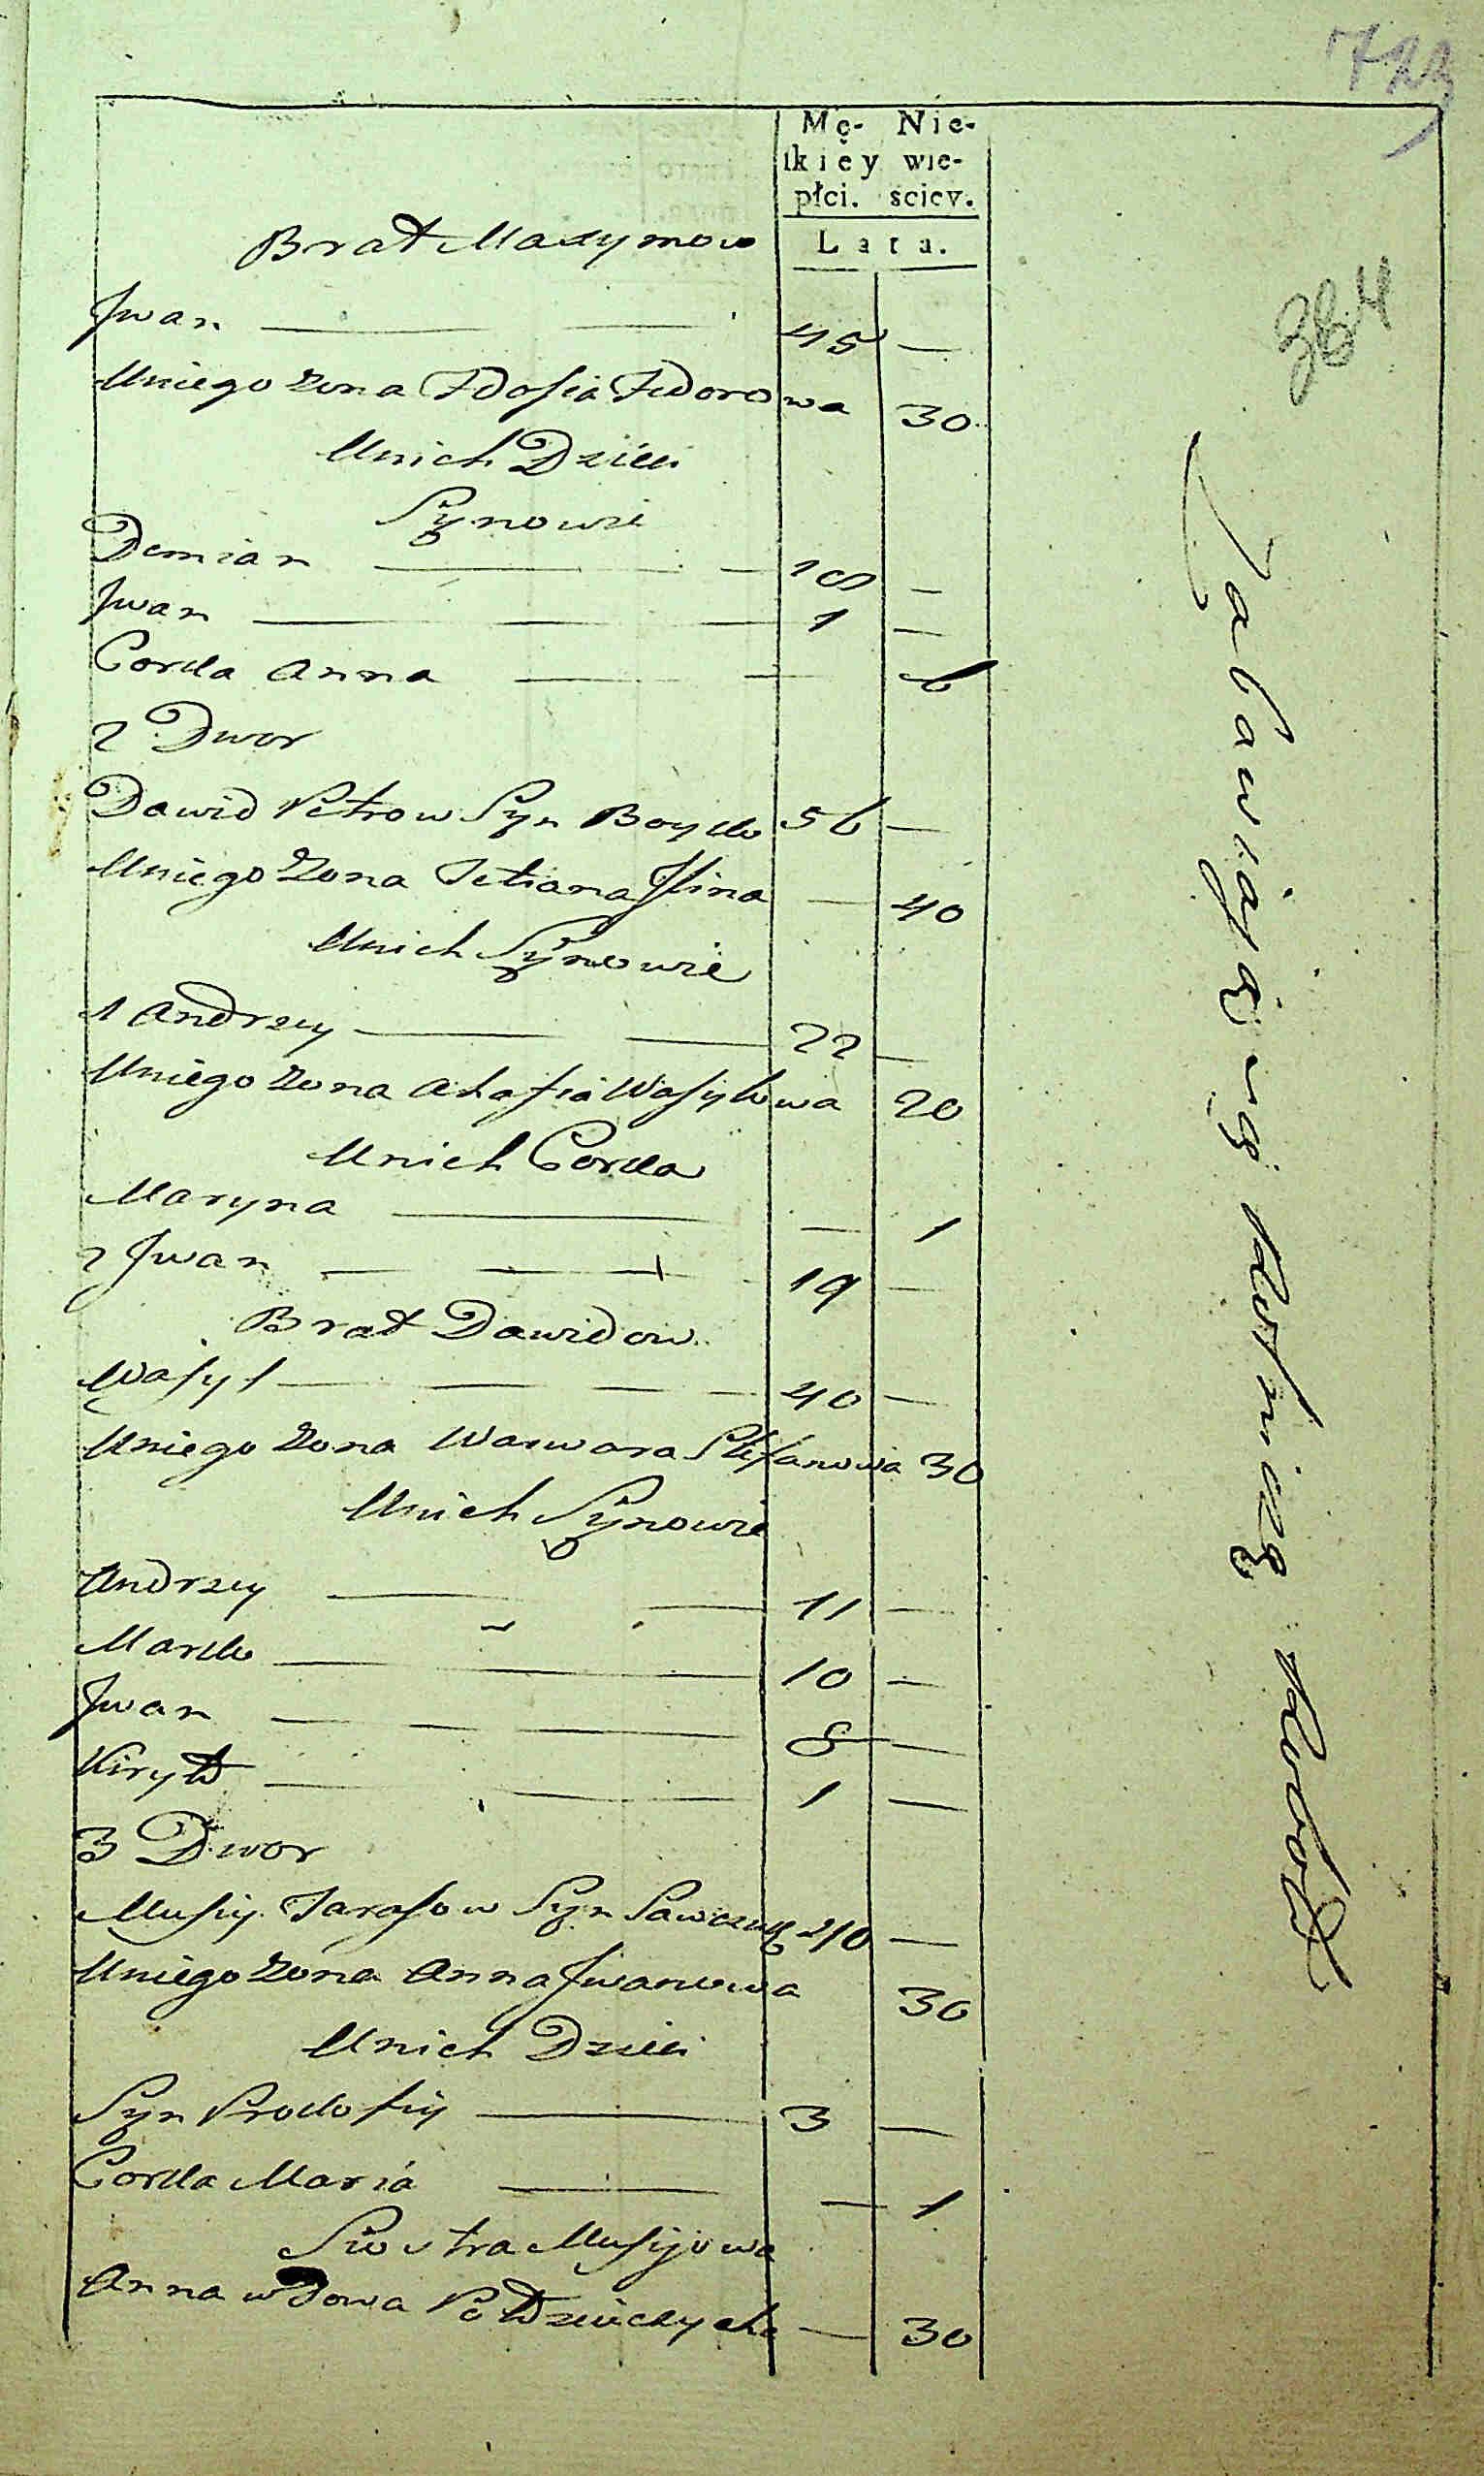 723
364
Mę- Nie-
skiéy wie-
płci. sciey.
Lata.
Brat Maxymow
Jwan 45 —
Uniego żona Fdosia Fedorowa 30
Unich Dzieci
Synowie
Demian 18 —
Jwan 1 —
Corka Anna — 6
2 Dwor
Dawid Petrow Syn Boyko 56 —
Uniego żona Tetiana Jlina — 40
Unich Synowie
1 Andrzey 22 —
Uniego żona Ahafia Wasylowa 20
Unich Corka
Maryna — 1
2 Jwan 19 —
Brat Dawidow
Wasyl 40 —
Uniego żona Warwara Stefanowa 30
Unich Synowie
Andrzey 11 —
Marko 10 —
Jwan 8 —
Kiryło 1 —
3 Dwor
Musiy Tarasow Syn Sawczuk 40 —
Uniego żona Anna Jwanowa 30
Unich Dzieci
Syn Prokofiy 3 —
Corka Maria — 1
Siostra Musijowa
Anna wdowa — 30